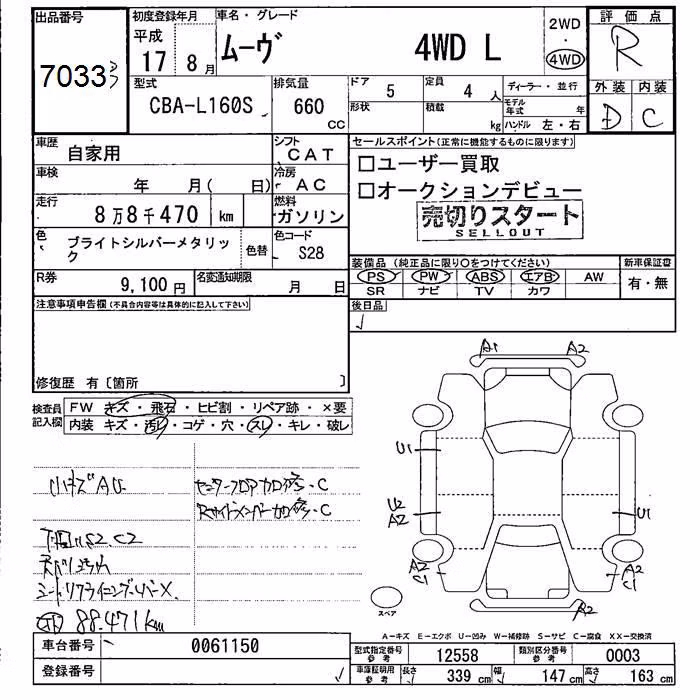 出品番号
7033
初度登録年月
平成
17年 8月
車名・グレード
ムーヴ 4WD L
2WD
・
4WD
評価点
R
外装 内装
D C
型式
CBA-L160S
排気量
660
CC
ドア
5
定員
4人
形状
積載
kg
ディーラー・並行
モデル年式 年
ハンドル 左・右
車歴
自家用
シフト
CAT
車検
年 月( 日)
冷房
AC
走行
8万8千470 km
燃料
ガソリン
色
ブライトシルバーメタリック
色替
色コード
S28
R券
9,100円
名変通知期限
月 日
セールスポイント(正常に機能するものに限ります)
□ユーザー買取
□オークションデビュー
売切りスタート
SELLOUT
装備品(純正品に限り○をつけてください)
PS PW ABS エアB AW
SR ナビ TV カワ
新車保証書
有・無
後日品
注意事項申告欄(不具合内容等は具体的に記入して下さい)
修復歴 有〔箇所 〕
検査員記入欄
FW キズ・飛石・ヒビ割・リペア跡・×要
内装 キズ・汚れ・コゲ・穴・スレ・キレ・破レ
小キズAU
センターフロア加修・C
Rサイドメンバー加修・C
下回りS2.C2
シートリクライニングレバーX
88.471km
A1 A2
U1
U2
A2
U1
A2
C1
A2
C1
A2
スペア
A-キズ E-エクボ U-凹み W-補修跡 S-サビ C-腐食 XX-交換済
車台番号
0061150
登録番号
型式指定番号
参考
12558
類別区分番号
参考
0003
車庫証明用
参考
長さ 339cm 幅 147cm 高さ 163cm